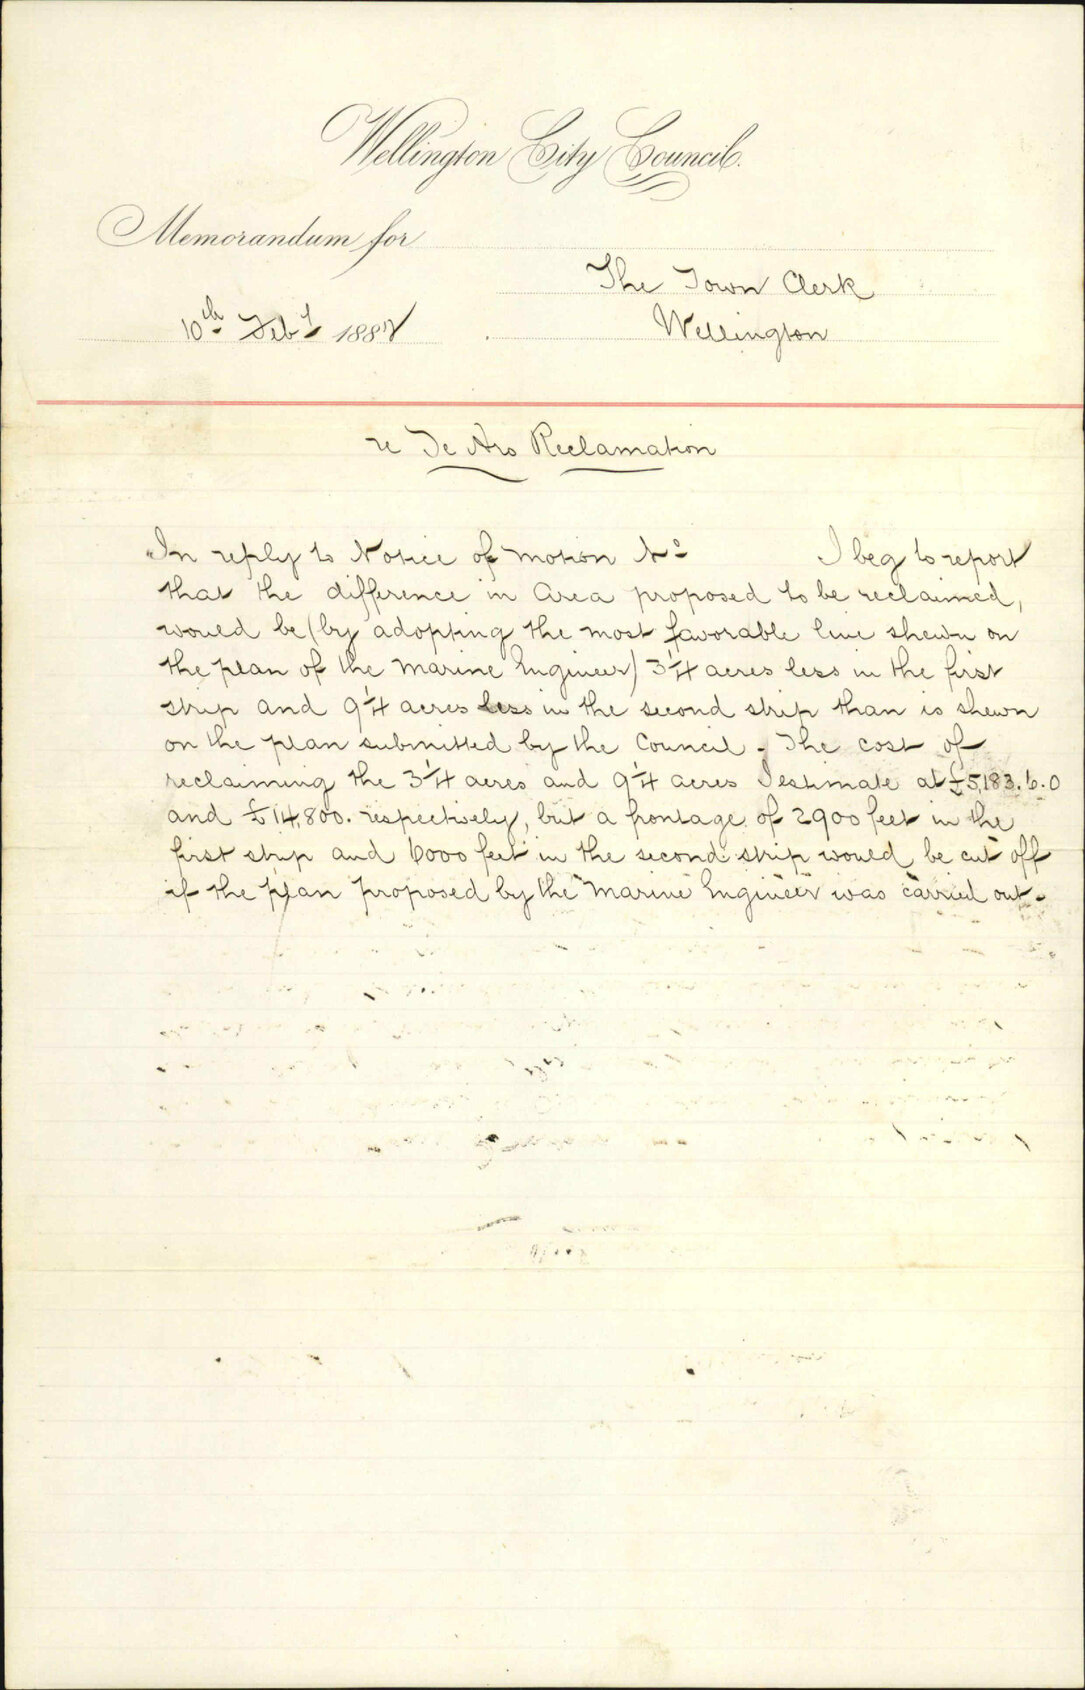 Wellington City Council.
Memorandum for
The Town Clerk
10th Feby 1887
Wellington
re Te Aro Reclamation
In reply to Notice of motion No I beg to report
that the difference in Area proposed to be reclaimed,
would be (by adopting the most favorable line shewn on
the plan of the Marine Engineer) 3 1/4 acres less in the first
strip and 9 1/4 acres less in the second strip than is shewn
on the plan submitted by the Council. The cost of
reclaiming the 3 1/4 acres and 9 1/4 acres I estimate at £5,183.6.0
and £14,800. respectively, but a frontage of 2900 feet in the
first strip and 6000 feet in the second strip would be cut off
if the plan proposed by the Marine Engineer was carried out.